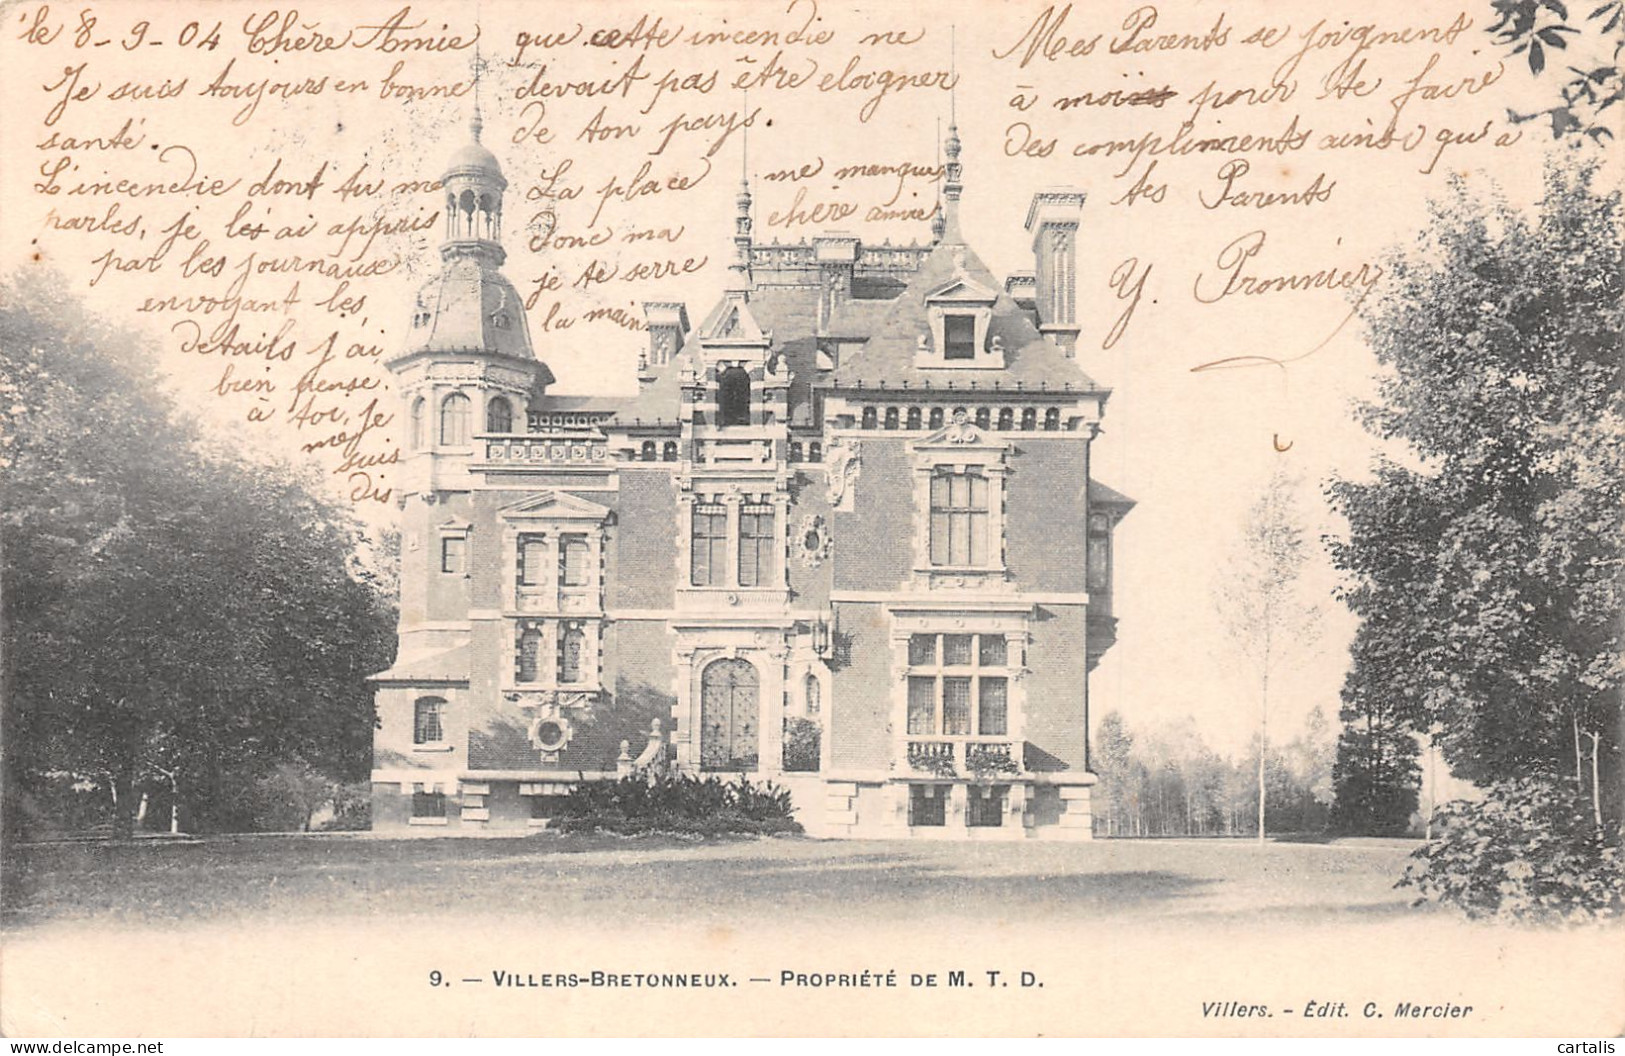 le 8-9-04 Chère Amie
Je suis toujours en bonne
santé.
L'incendie dont tu me
parles, je l'ai appris
par les journaux
envoyant les
details j'ai
bien pensé
à toi, Je
me suis
dis
que cette incendie ne
devait pas être eloigner
de ton pays.
La place me manque
donc ma chère amie
je te serre
la main
Mes Parents se joignent
à moi pour te faire
des compliments ainsi qu'a
tes Parents
Y. Pronnier
9. — VILLERS-BRETONNEUX. — PROPRIÉTÉ DE M. T. D.
Villers. - Édit. C. Mercier
cartalis